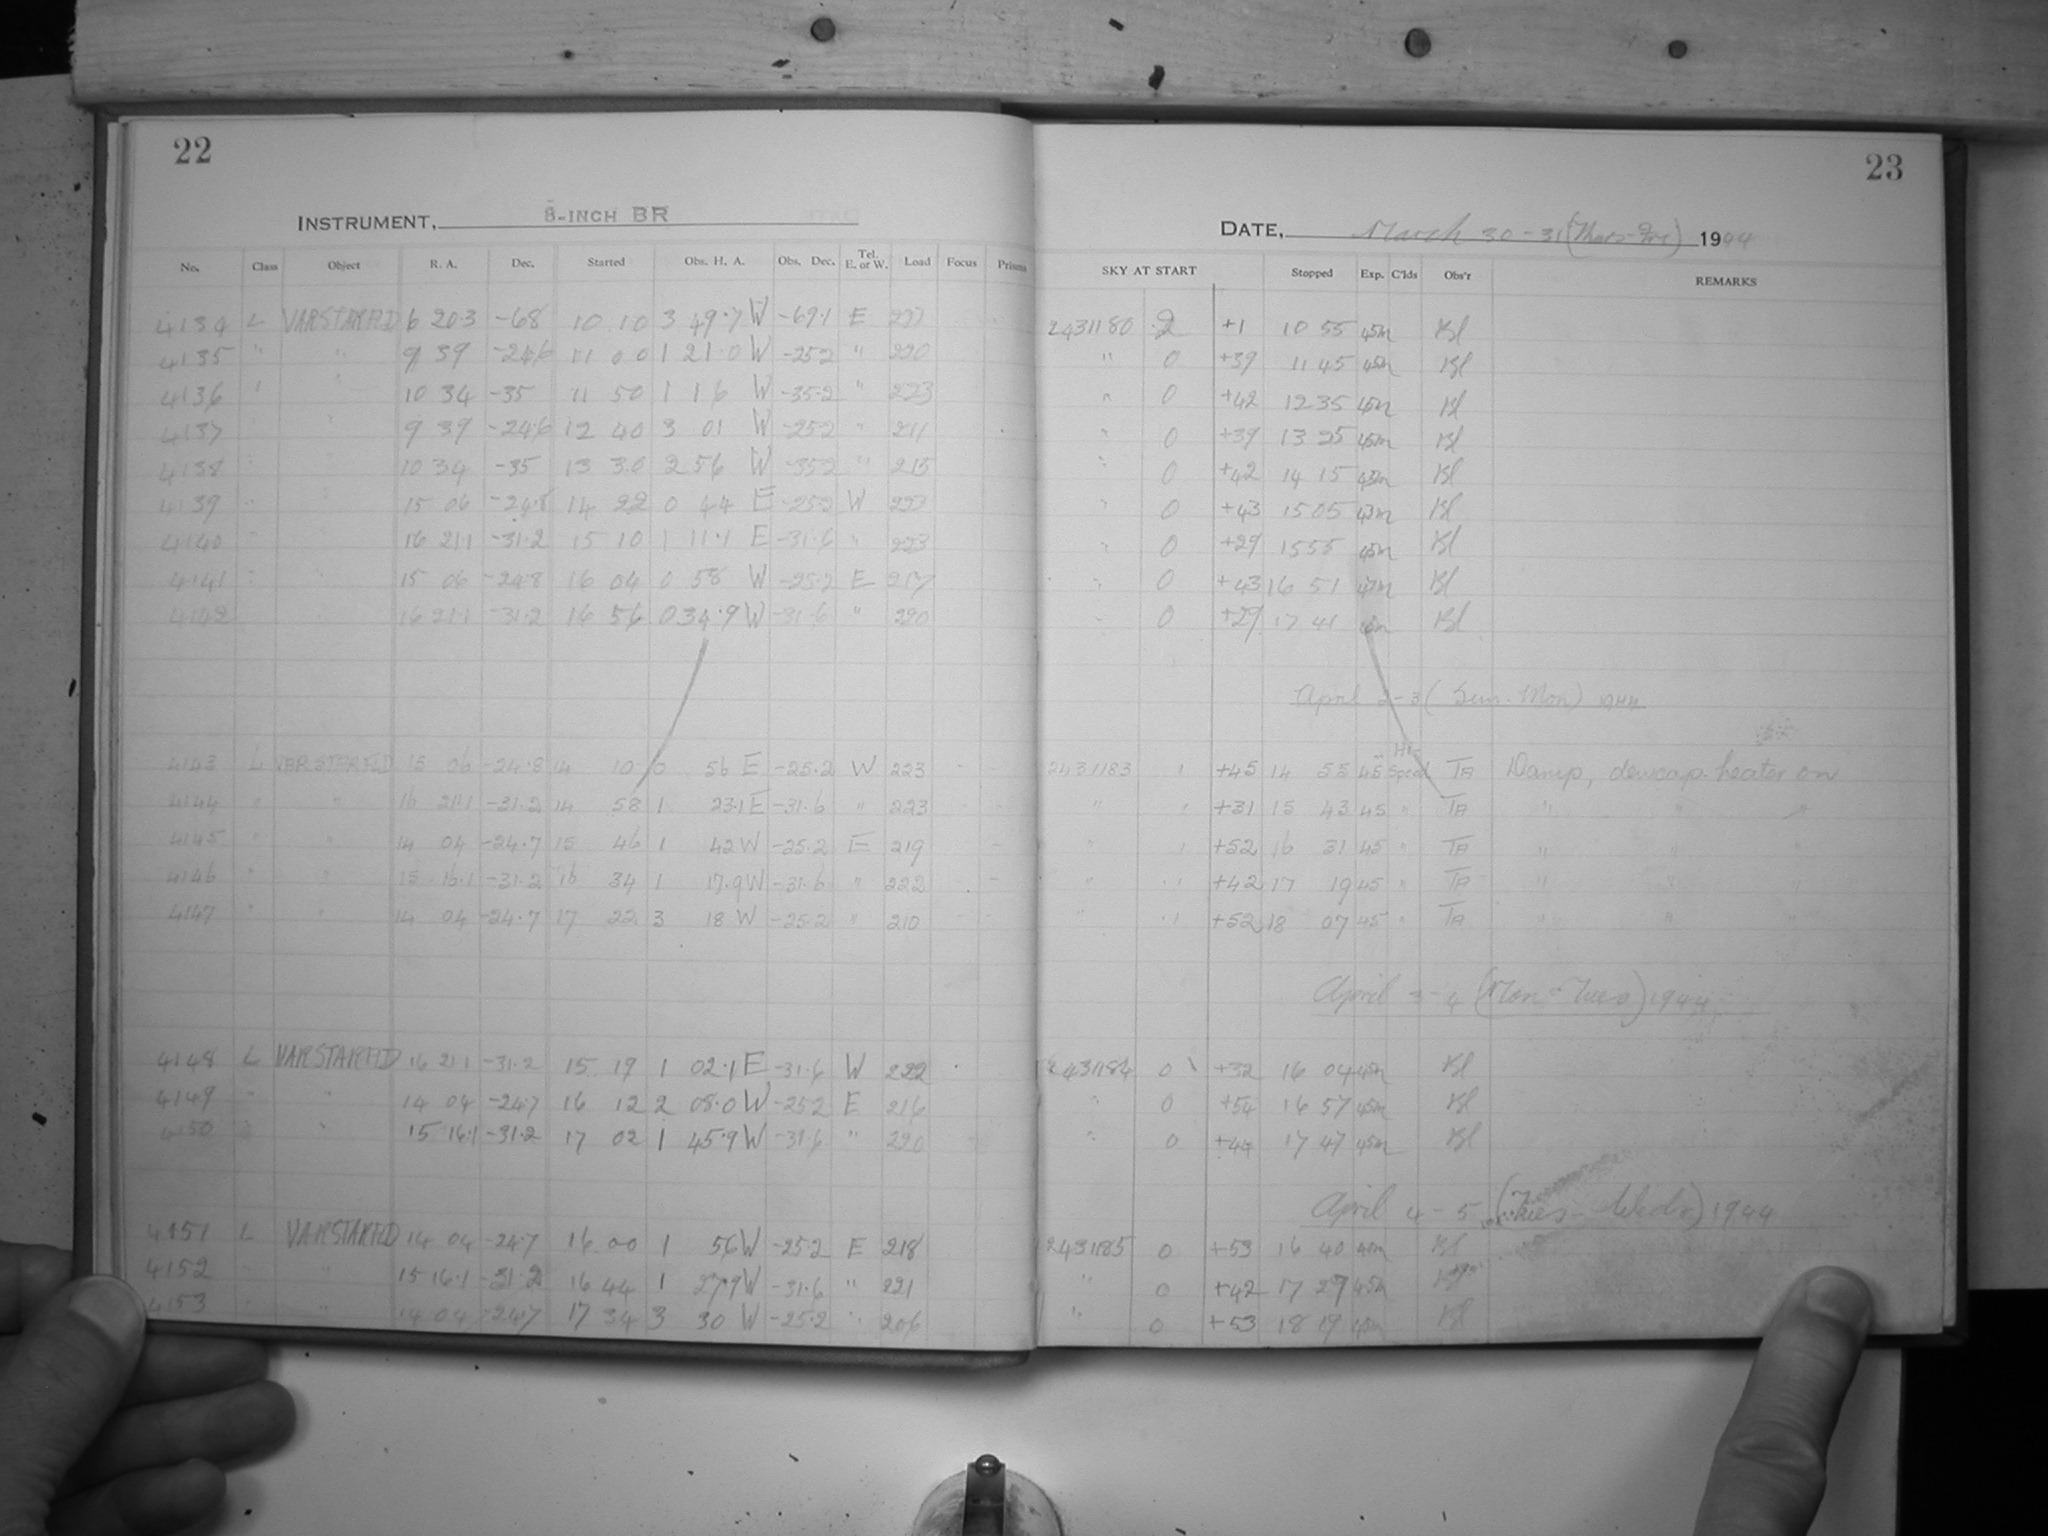 22
23
INSTRUMENT, 8-INCH BR
DATE, March 30-31 (Thurs-Fri) 1944
No. Class Object R. A. Dec. Started Obs. H. A. Obs. Dec. Tel. E. or W. Load Focus Prisms SKY AT START Stopped Exp. C'lds Obs'r REMARKS
4134 L VARSTARFLD 6 20.3 -68 10 10 3 49.7 W -69.1 E 2431180 2 +1 10 55 45m Bl
4135 " " 9 39 -24.6 11 00 1 21.0 W -25.2 " 220 " 0 +39 11 45 45m Bl
4136 10 34 -35 11 50 1 16 W -35.2 " 223 " 0 +42 12 35 45m Bl
4137 9 39 -24.6 12 40 3 01 W -25.2 " 211 " 0 +39 13 25 45m Bl
4138 10 34 -35 13 30 2 56 W -35.2 " 213 " 0 +42 14 15 45m Bl
4139 15 06 -24.8 14 22 0 44 E -25.2 W 223 " 0 +43 15 05 43m Bl
4140 16 21.1 -31.2 15 10 1 11.1 E -31.6 " 223 " 0 +29 15 55 45m Bl
4141 15 06 -24.8 16 04 0 58 W -25.2 E 217 " 0 +43 16 51 47m Bl
4142 16 21.1 -31.2 16 56 0 34.9 W -31.6 " 220 0 +29 17 41 45m Bl
April 2-3 (Sun-Mon) 1944
4143 L VARSTARFLD 15 06 -24.8 14 10 0 56 E -25.2 W 223 - - 2431183 1 +45 14 55 45 Hi Speed TA Damp, dewcap-heater on
4144 " " 16 21.1 -31.2 14 58 1 23.1 E -31.6 " 223 " 1 +31 15 43 45 " TA " " "
4145 " " 14 04 -24.7 15 46 1 42 W -25.2 E 219 - " 1 +52 16 31 45 " TA " " "
4146 " " 15 16.1 -31.2 16 34 1 17.9 W -31.6 " 222 - " 1 +42 17 19 45 " TA " " "
4147 " " 14 04 -24.7 17 22 3 18 W -25.2 " 210 - - " 1 +52 18 07 45 " TA " " "
April 3-4 (Mon-Tues) 1944
4148 L VARSTARFLD 16 21.1 -31.2 15 19 1 02.1 E -31.6 W 222 2431184 0 +32 16 04 45m Bl
4149 " " 14 04 -24.7 16 12 2 08.0 W -25.2 E 216 " 0 +54 16 57 45m Bl
4150 " 15 16.1 -31.2 17 02 1 45.9 W -31.6 " 220 " 0 +44 17 47 45m Bl
April 4-5 (Tues-Weds) 1944
4151 L VARSTARFLD 14 04 -24.7 16 00 1 56 W -25.2 E 218 2431185 0 +53 16 40 40m Bl
4152 " 15 16.1 -31.2 16 44 1 27.9 W -31.6 " 221 " 0 +42 17 29 45m
4153 " 14 04 -24.7 17 34 3 30 W -25.2 " 206 " 0 +53 18 19 45m Bl